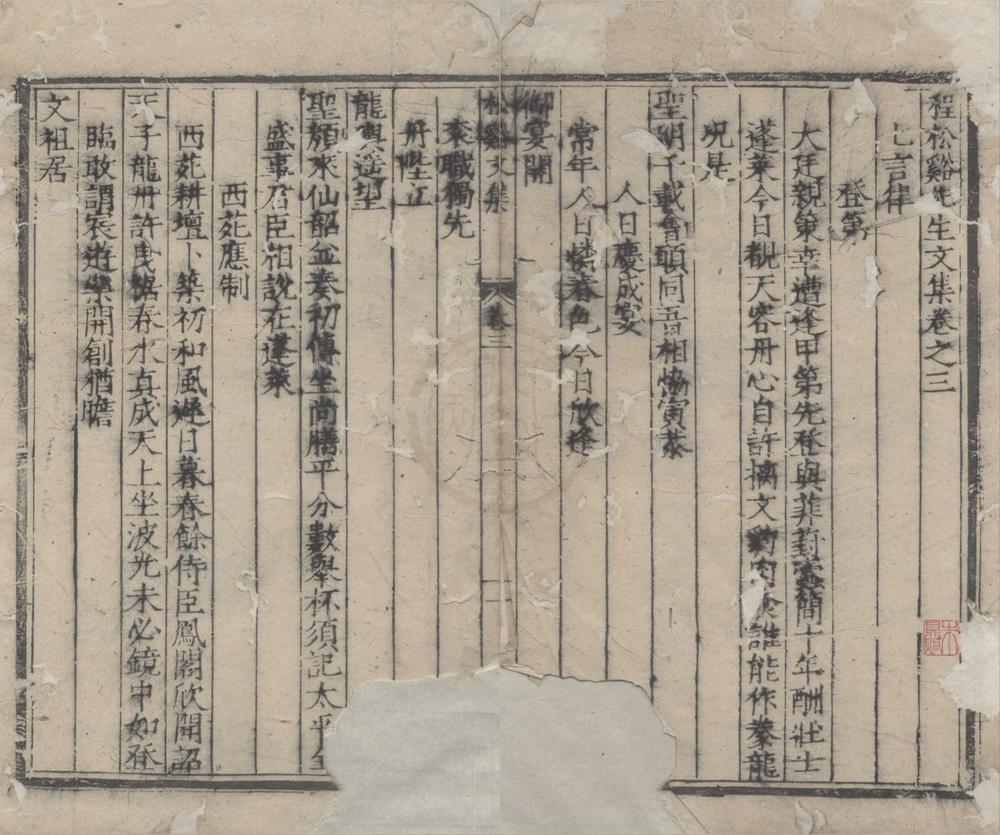 程松谿先生文集卷之三
七言律
登第
大廷親策幸遭逢甲第先登與菲葑間十年酬壯士
蓬萊今日覩天容丹心自許摛文誰能作豢龍
況是
聖明千載會頭同相恊寅恭
人日慶成宴
常年人日憐春色今日欣逢
御宴開
袞職獨先
丹陛立
龍輿遥望
松谿文集 卷三 一
聖顏來仙韶並奏初傳坐尚膳平分數舉杯須記太平
盛事君臣相說在蓬萊
西苑應制
西苑耕壇卜築初和風遲日暮春餘侍臣鳳閣欣開詔
天子龍舟許曳裾春水真成天上坐波光未必鏡中如登
臨敢謂宸遊樂開創猶瞻
文祖居